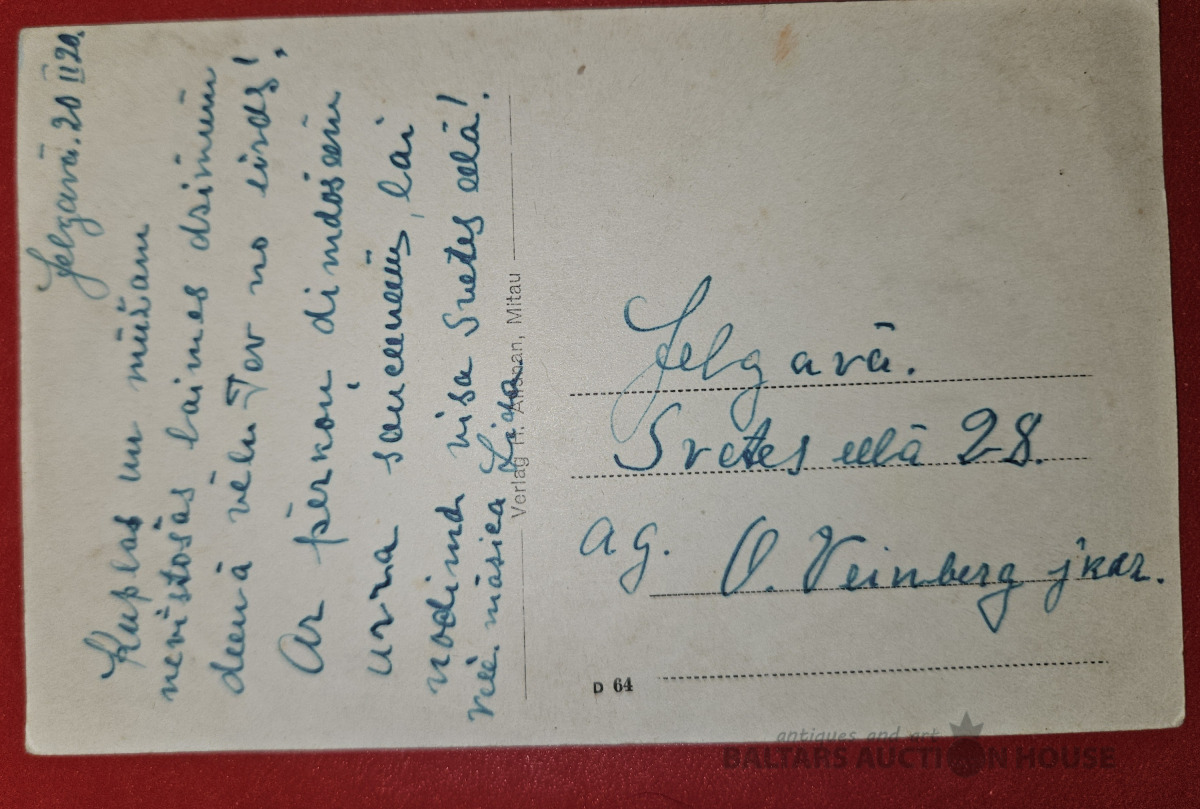 Jelgavā. 20 II 20.
Kuplas un mūžam
nevīstošas laimes dzimum
deenā vēlu Tev no sirds!
Ar pērkoņ dimdošeem
urra sauceeneem, lai
nodimd visa Svetes eelā!
māsica
Verlag H. Mitau
Jelgavā.
Svetes eelā 28.
ag. O. Veinberg jkdz.
D 64
antiques and art
BALTARS AUCTION HOUSE